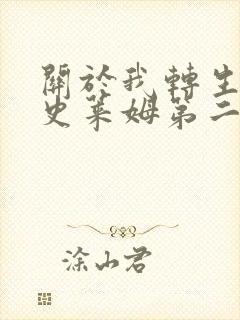 關於我轉生
史萊姆第二
涂山君